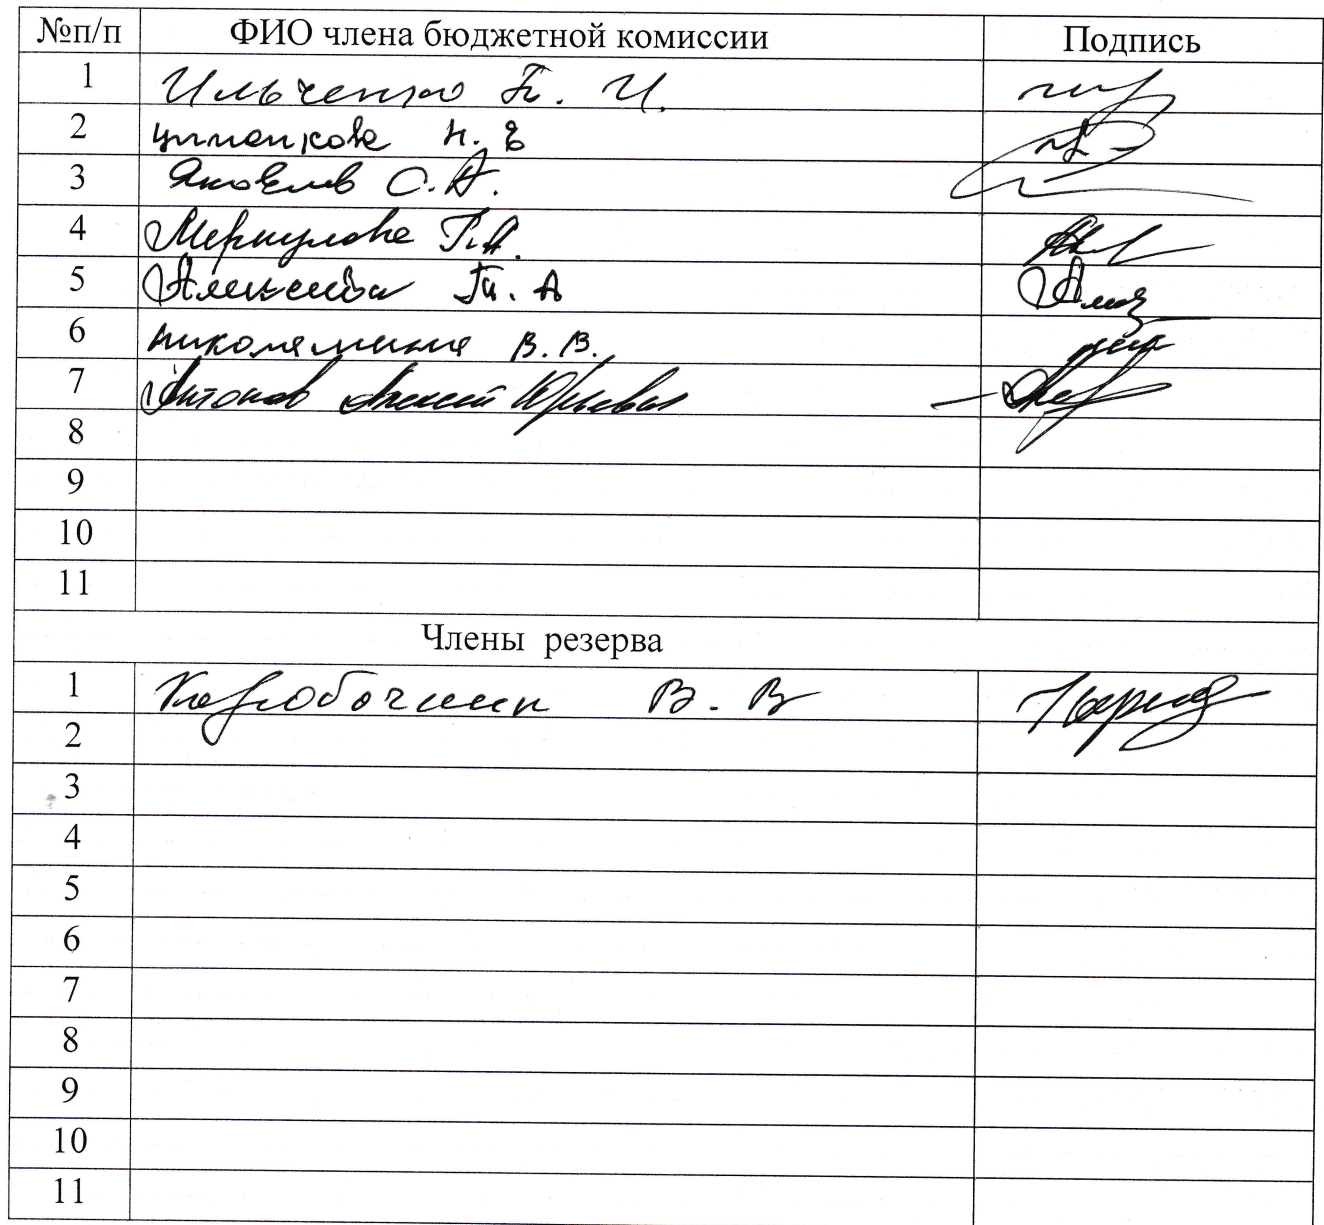 №п/п ФИО члена бюджетной комиссии Подпись
1 Ильченко Т. И.
2 Н. Е
3 Яковлев С.А.
4 Меркулова Г.А.
5 Алексеева Т. А
6 В. В.
7 Антонов Алексей Юрьевич
8
9
10
11
Члены резерва
1 Коробочкин В. В
2
3
4
5
6
7
8
9
10
11